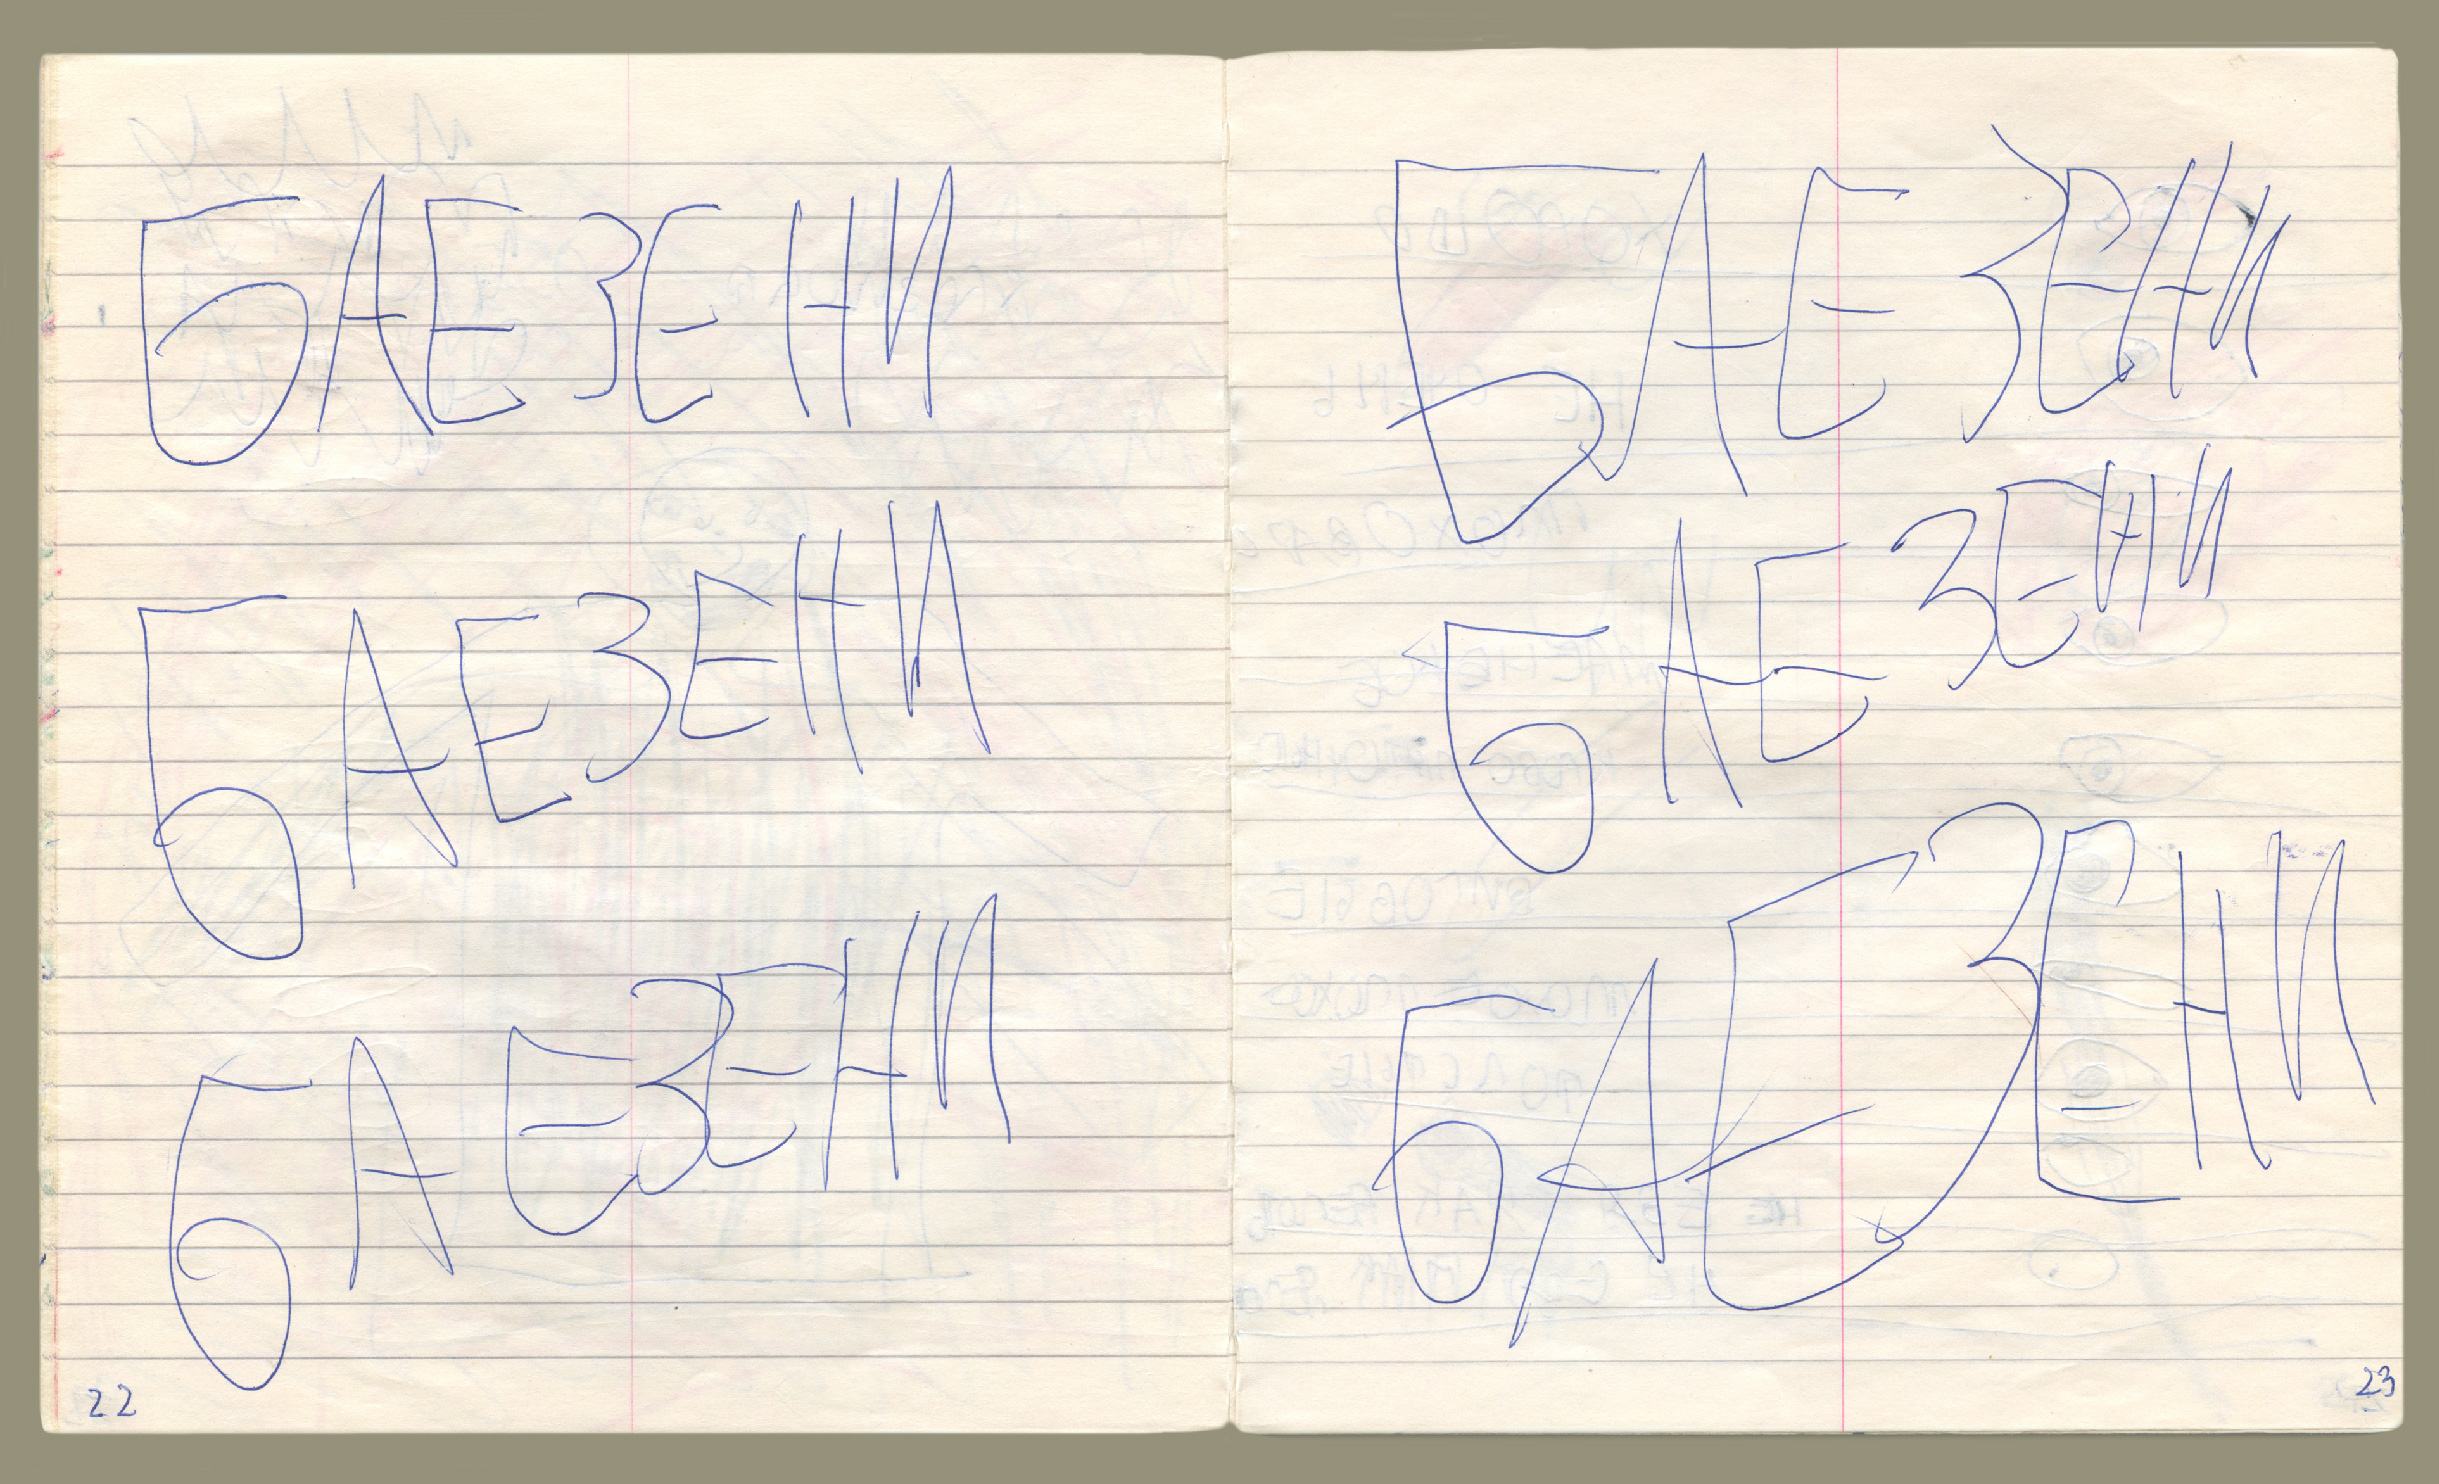 БАЕЗЕНИ
БАЕЗЕНИ
БАЕЗЕНИ
22
БАЕЗЕНИ
БАЕЗЕНИ
БАЕЗЕНИ
23